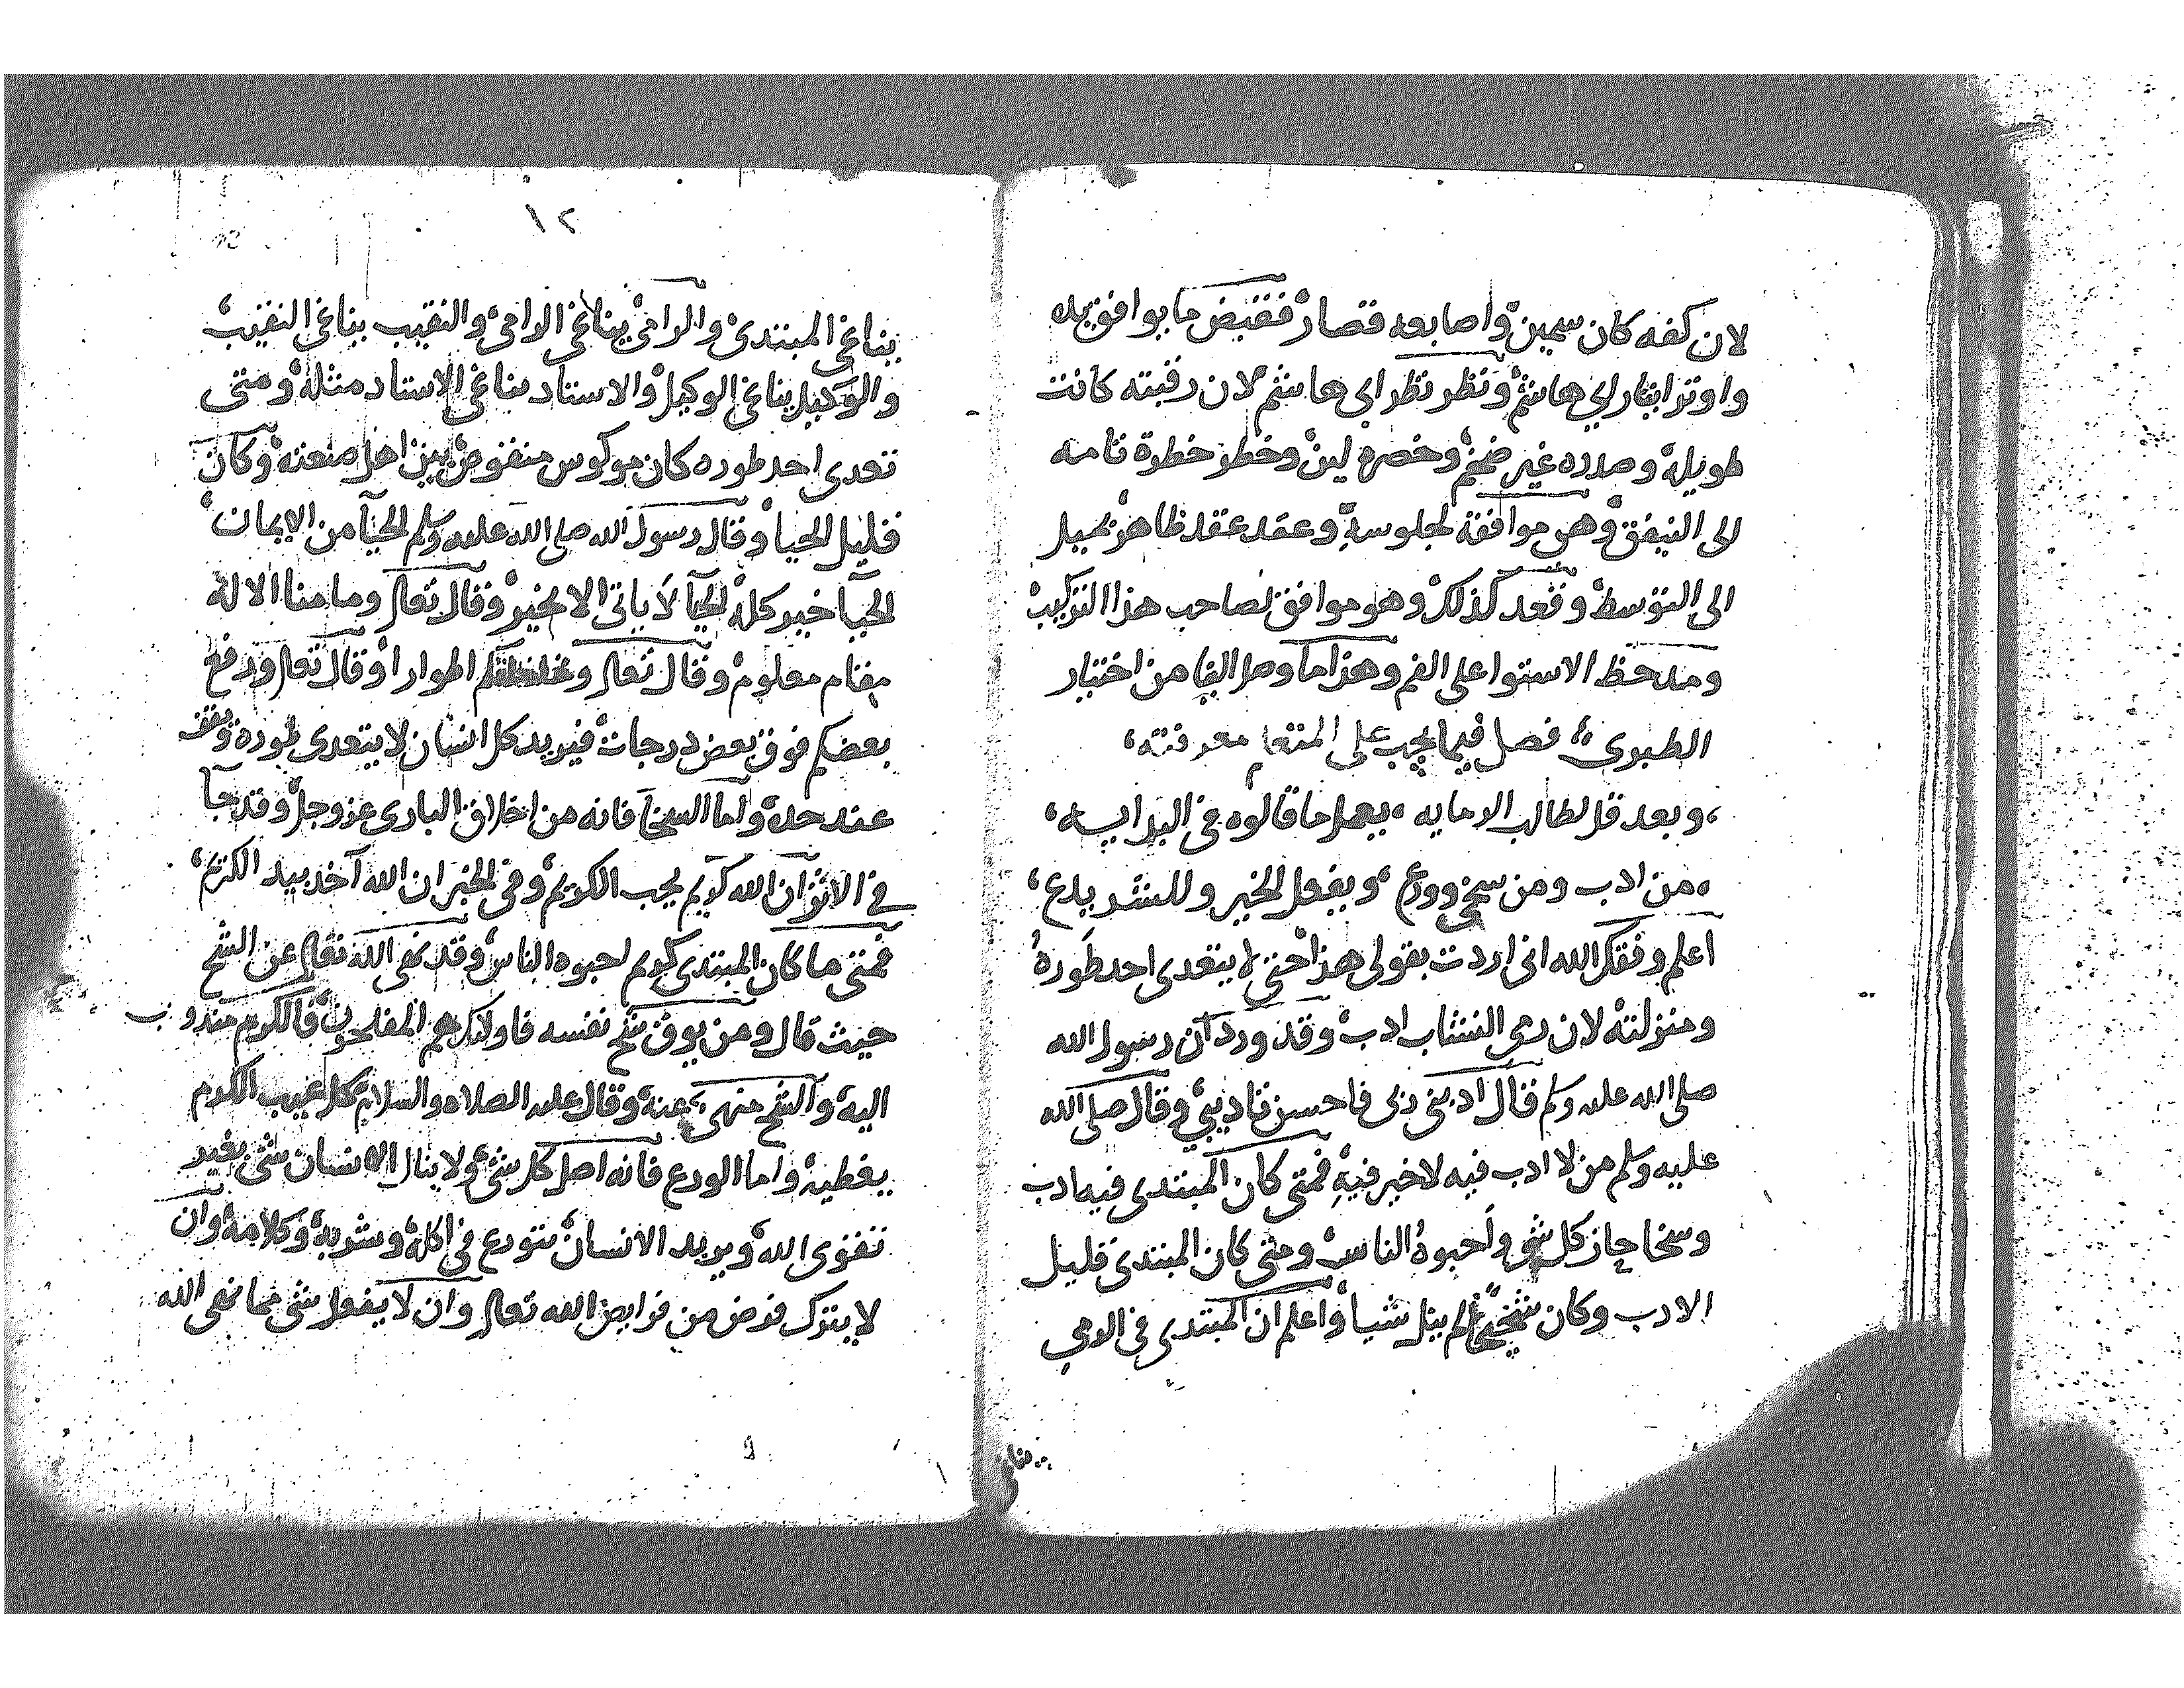 لان كفه كان سمين واصابعه قصار فقبض ما يوافق يده
واوتر ايتار ابي هاشم ونظر نظر ابي هاشم لان رقبته كانت
طويله وصدره غير ضخم وخصره لين وخطر خطرة تامه
الى النيفق وهى موافقة لجلوسه وعقد عقد ظاهر يميل
الى التوسط وقعد كذلك وهو موافق لصاحب هذا التركيب
ومد حظ الاستوا على الفم وهذا ما وصل الينا من اختيار
الطبرى فصل فيما يجب على المتعلم معرفته
وبعد قل لطالب الامايه يعمل ما قالوه فى البدايه
من ادب ومن سخى وورع ويفعل الخير وللشر يدع
اعلم وفقك الله انى اردت بقولى هذا حتى لا يتعدى احد طوره
ومنزلته لان رمى النشاب ادب وقد ورد ان رسول الله
صلى الله عليه وسلم قال ادبنى ربى فاحسن تاديبي وقال صلى الله
عليه وسلم من لا ادب فيه لا خير فيه فمتى كان المبتدى فيه ادب
وسخا جاز كل شي واحبوه الناس ومتى كان المبتدى قليل
الادب وكان لم ينل شيا واعلم ان المبتدى فى الرمى
يناغى
١٢
يناغى المبتدى والرامى يناغى الرامى والنقيب يناغى النقيب
والوكيل يناغى الوكيل والاستاد يناغى الاستاد مثله ومتى
تعدى احد طوره كان موكوس منقوض بين اهل صنعته وكان
قليل الحيا وقال رسول الله صلى الله عليه وسلم الحيآ من الايمان
الحيآ خير كله الحيآ لا ياتى الا بخير وقال تعالى وما منا الا له
مقام معلوم وقال تعالى وخلقكم اطوارا وقال تعالى ورفع
بعضكم فوق بعض درجات فيريد كل انسان لا يتعدى طوره ويقف
عند حده واما السخآ فانه من اخلاق البارى عز وجل وقد جآ
فى الاثر ان الله كريم يحب الكريم وفى الخبر ان الله آخذ بيد الكريم
فمتى ما كان المبتدى كريم احبوه الناس وقد نهى الله تعالى عن الشح
حيث قال ومن يوق شح نفسه فاولئك هم المفلحون فالكرم مندوب
اليه والشح منهى عنه وقال عليه الصلاه والسلام كل عيب الكرم
يغطيه واما الورع فانه اصل كل شى ولا ينال الانسان شى بغير
تقوى الله ويريد الانسان يتورع فى اكله وشربه وكلامه وان
لا يترك فرض من فرايض الله تعالى وان لا يفعل شى مما نهى الله